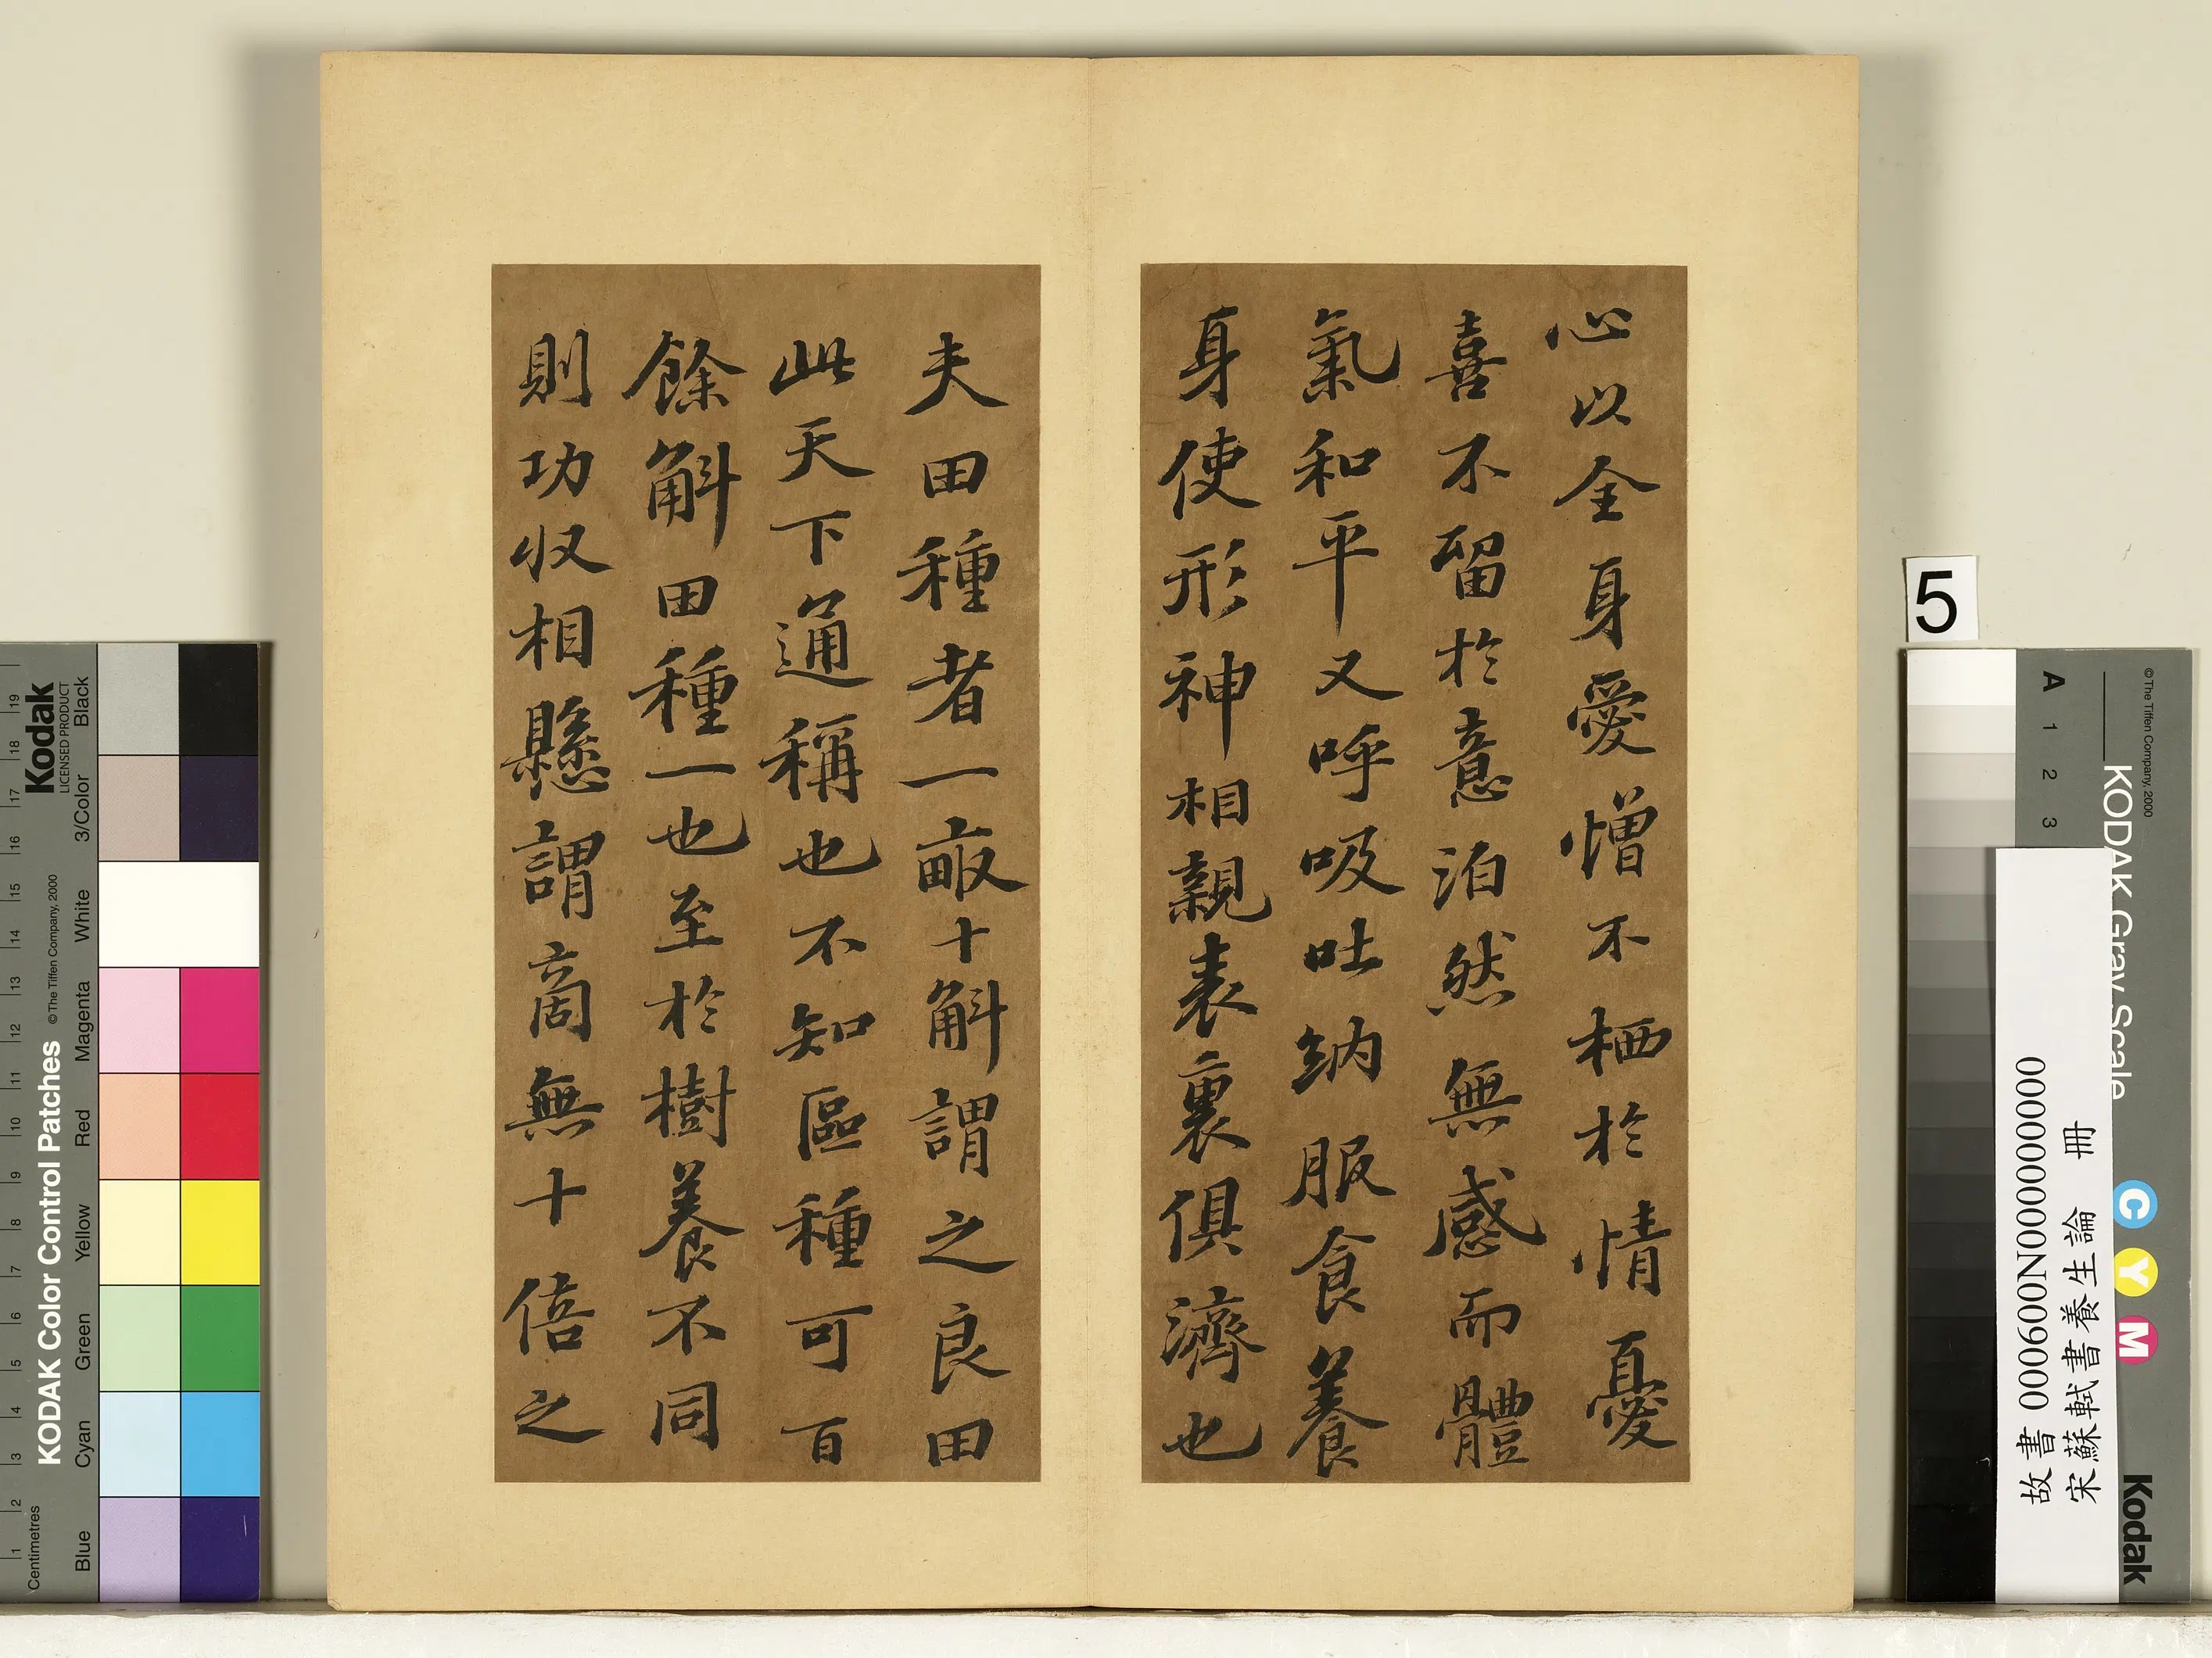 心以全身愛憎不栖於情憂
喜不留於意泊然無感而體
氣和平又呼吸吐納服食養
身使形神相親表裏俱濟也
夫田種者一畝十斛謂之良田
此天下通稱也不知區種可百
餘斛田種一也至於樹養不同
則功收相懸謂啇無十倍之
5
故書 000600N000000000
宋蘇軾書養生論 冊
KODAK Gray Scale
© The Tiffen Company, 2000
A 1 2 3
C Y M
Kodak
KODAK Color Control Patches
© The Tiffen Company, 2000
Kodak
LICENSED PRODUCT
Centimetres
1 2 3 4 5 6 7 8 9 10 11 12 13 14 15 16 17 18 19
Blue Cyan Green Yellow Red Magenta White 3/Color Black